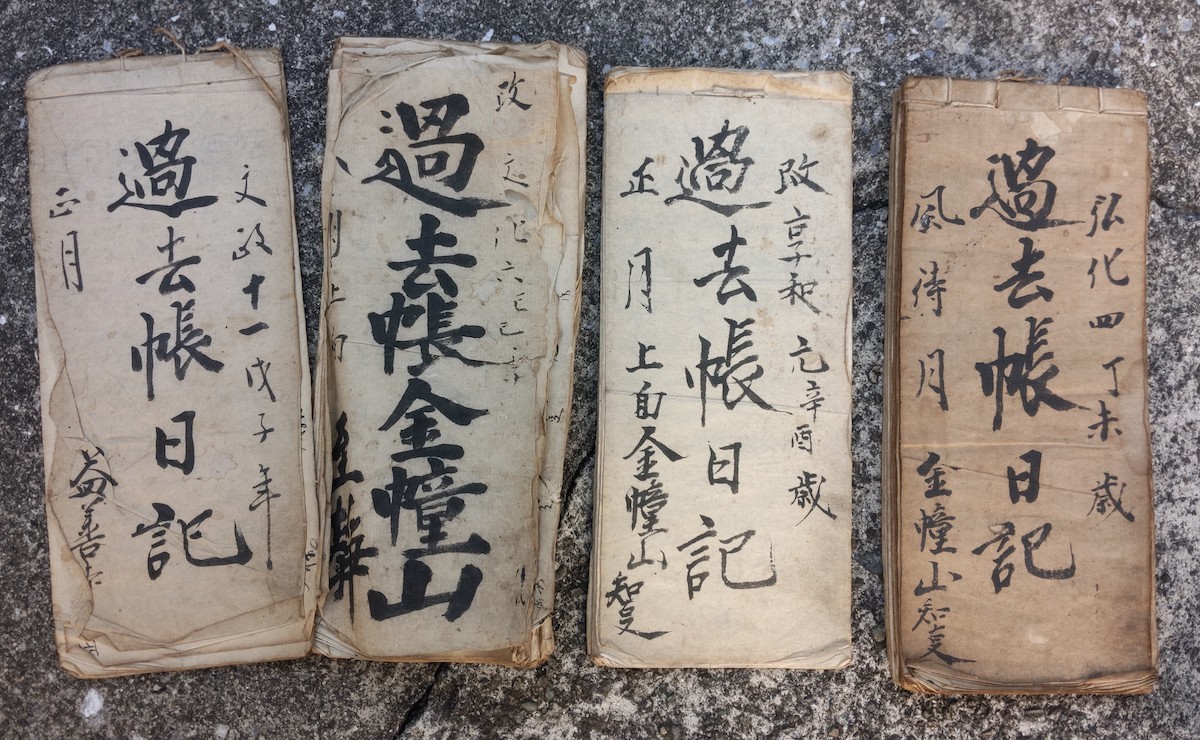 文政十一戊子年
過去帳日記
正月
益善
改
文化六己巳
過去帳金幢山
改享和元辛酉歳
過去帳日記
正月上旬金幢山
弘化四丁未歳
過去帳日記
風待月
金幢山